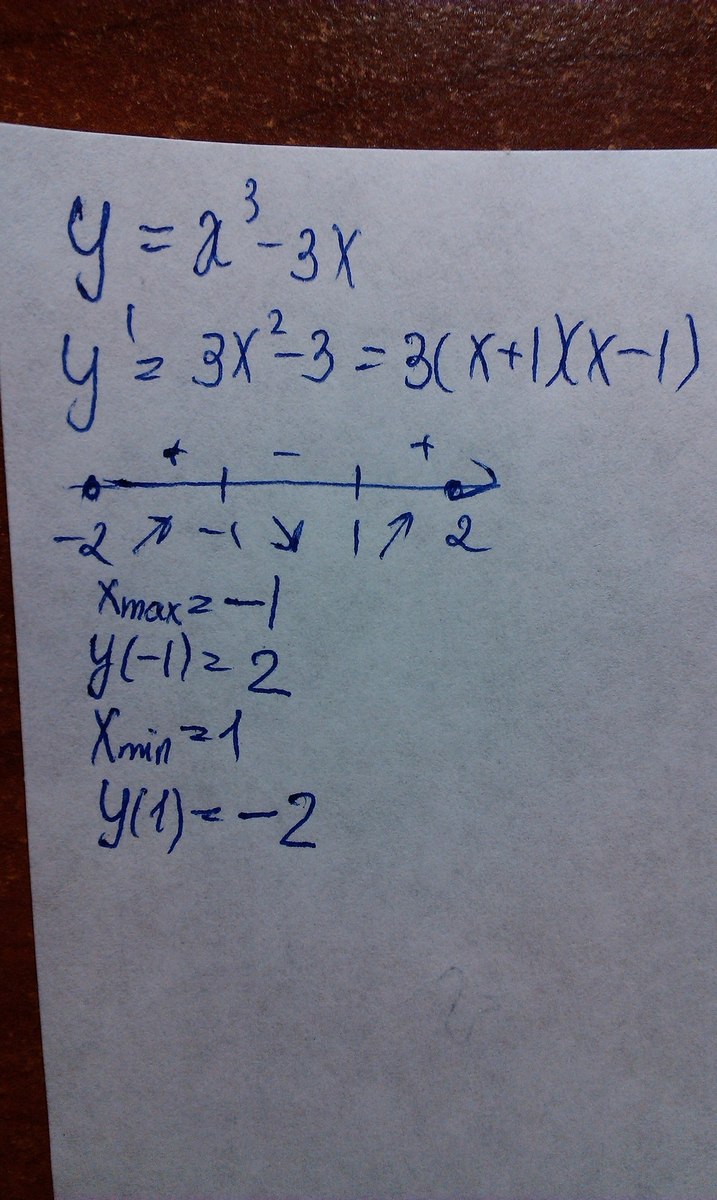 y = x³ - 3x
y' = 3x² - 3 = 3(x+1)(x-1)
+ - +
-2 ↗ -1 ↘ 1 ↗ 2
xmax = -1
y(-1) = 2
xmin = 1
y(1) = -2